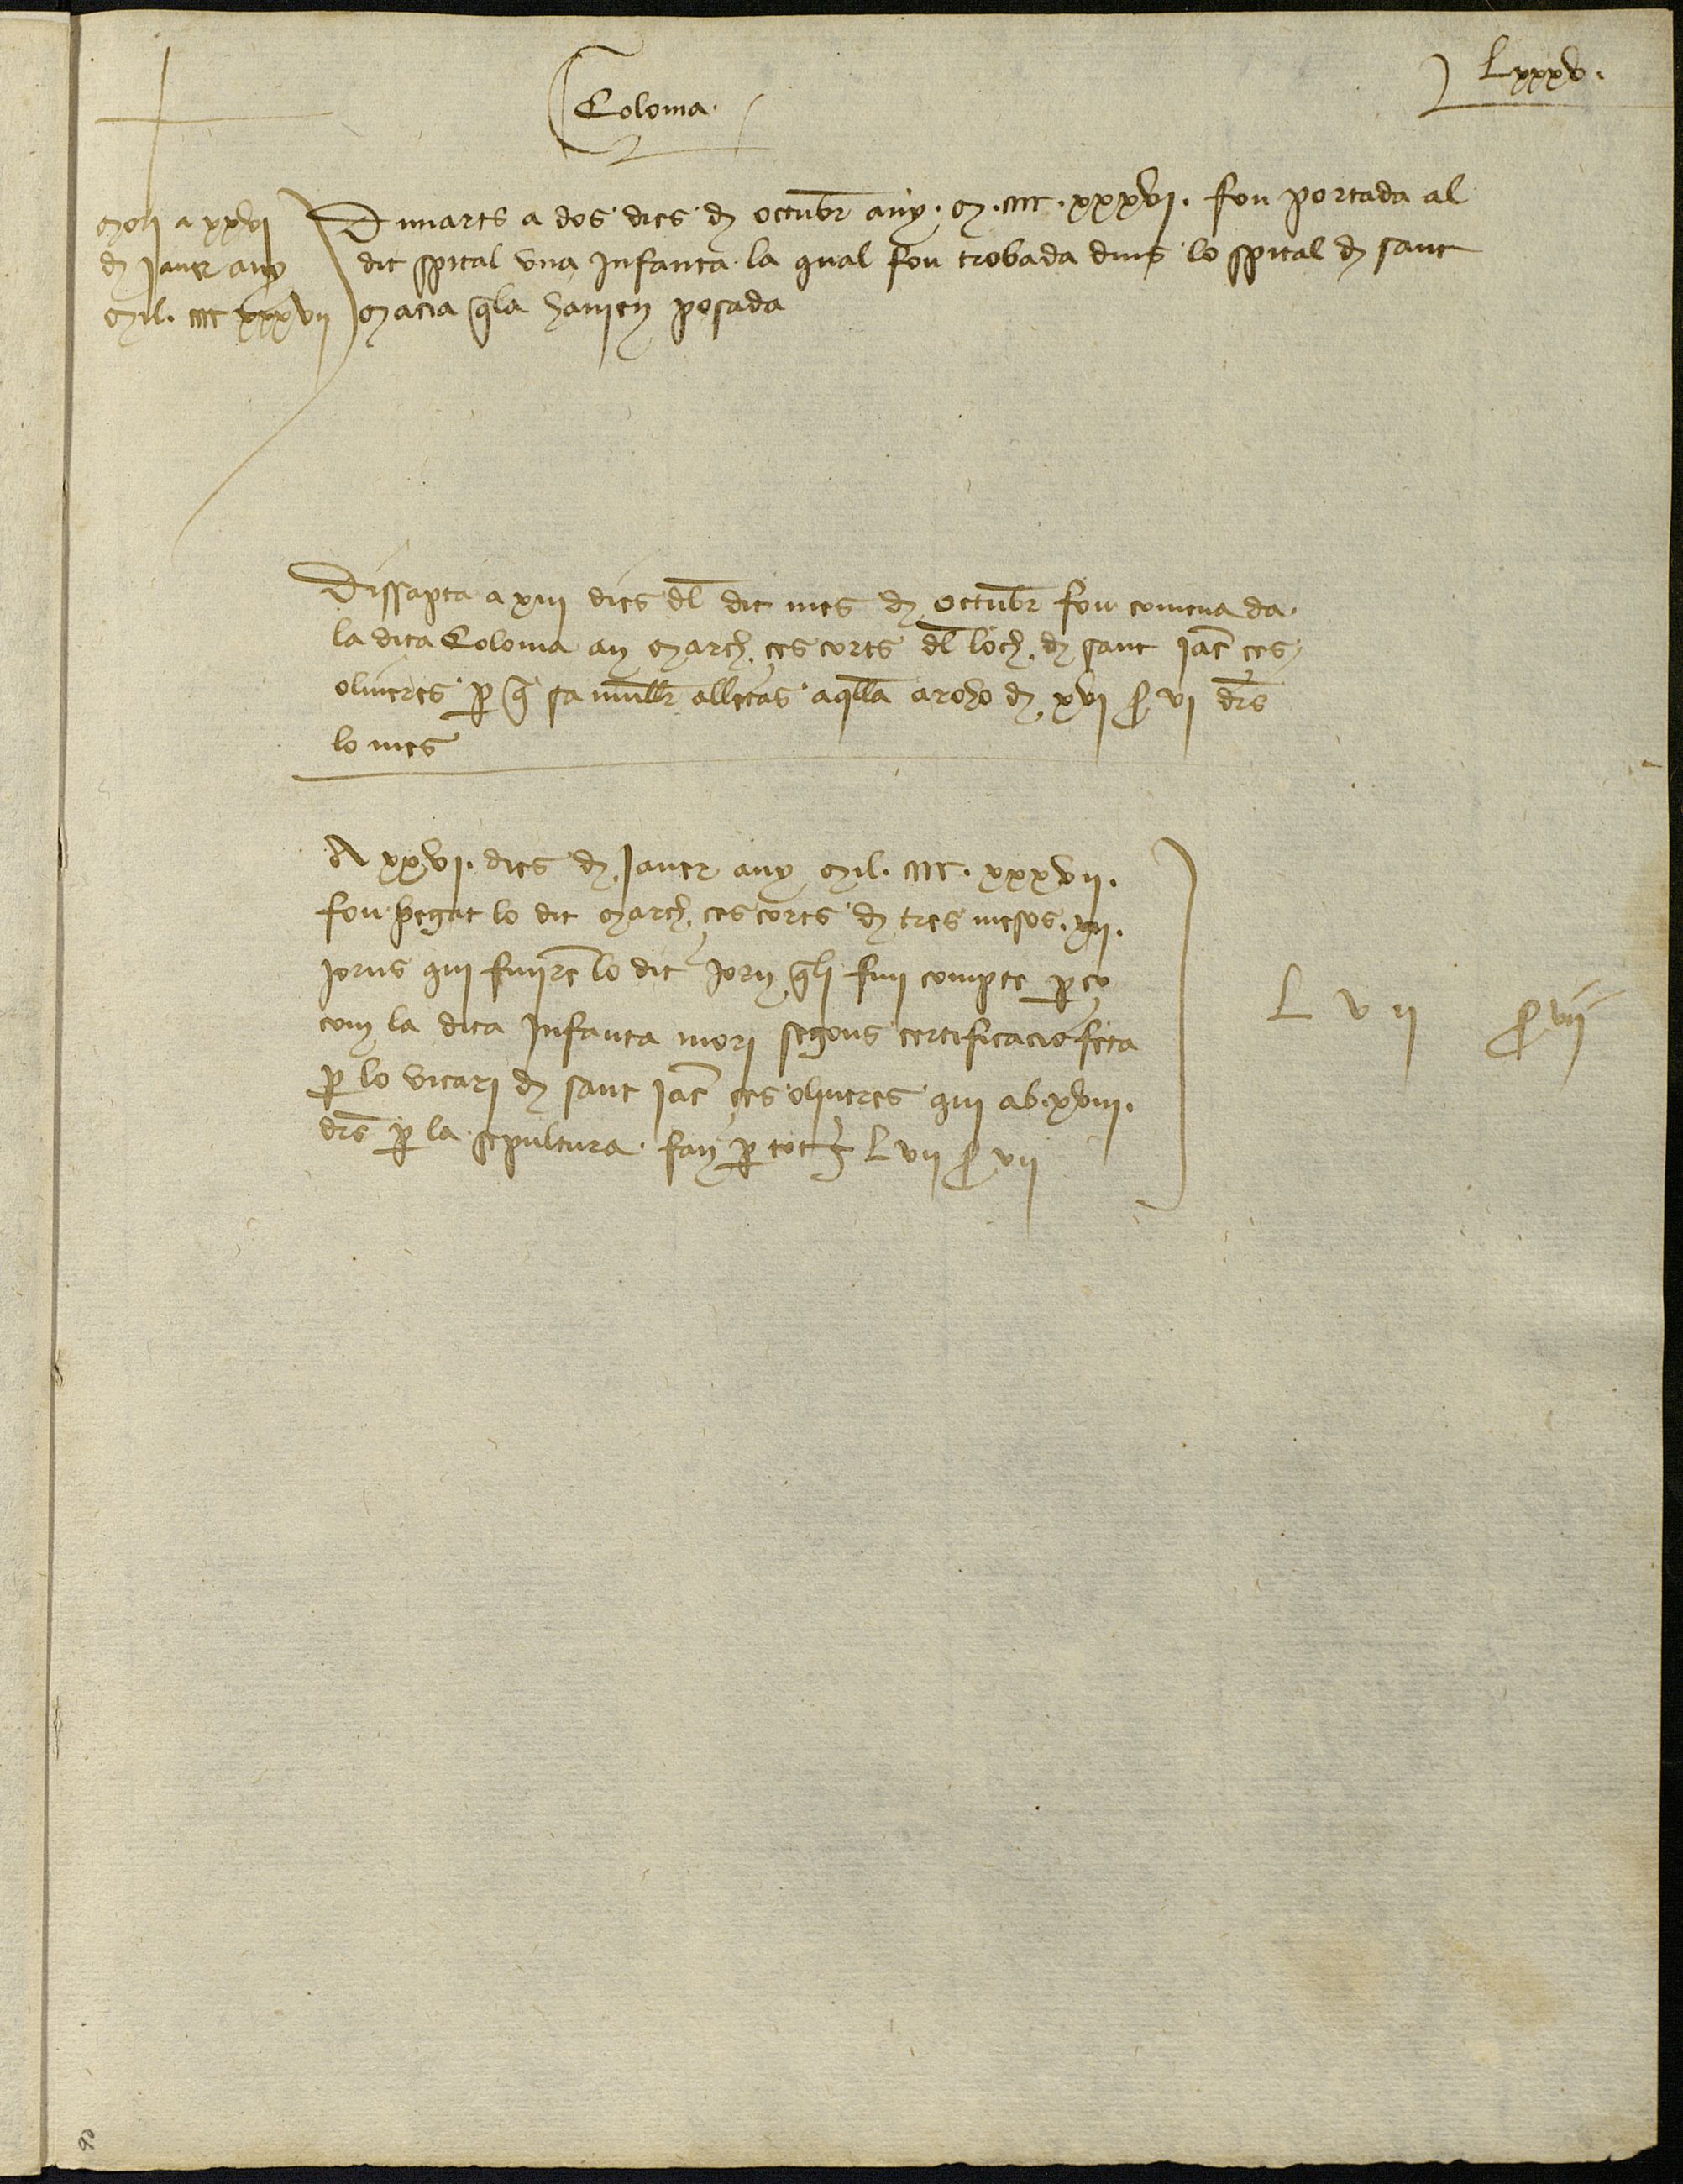 Lxxxv.
Coloma.
Mori a xxvi
de Janer any
Mil. cccc xxxvii
Dimarts a dos dies de octubre any. M. cccc. xxxvi. fou portada al
dit spital una Infanta la qual fou trobada dins lo spital de sant
Macia q la havien posada
Dissapta a xiii dies del dit mes de octubre fou comenada
la dita Coloma an March ces corts del loch de sant Jac ces
oliueres per q sa muller alletas aqlla a raho de xvi ss vi drs
lo mes
A xxvi. dies de Janer any Mil. cccc. xxxvii.
fou pagat lo dit March ces corts de tres mesos. xii.
jorns qui finiren lo dit jorn q li fiu compte per ço
com la dita Infanta mori segons certificacio feta
per lo vicari de sant Jac ces oliueres qui ab. xviii.
drs per la sepultura. fan per tot Lvii ss vii
L v ii ss vii